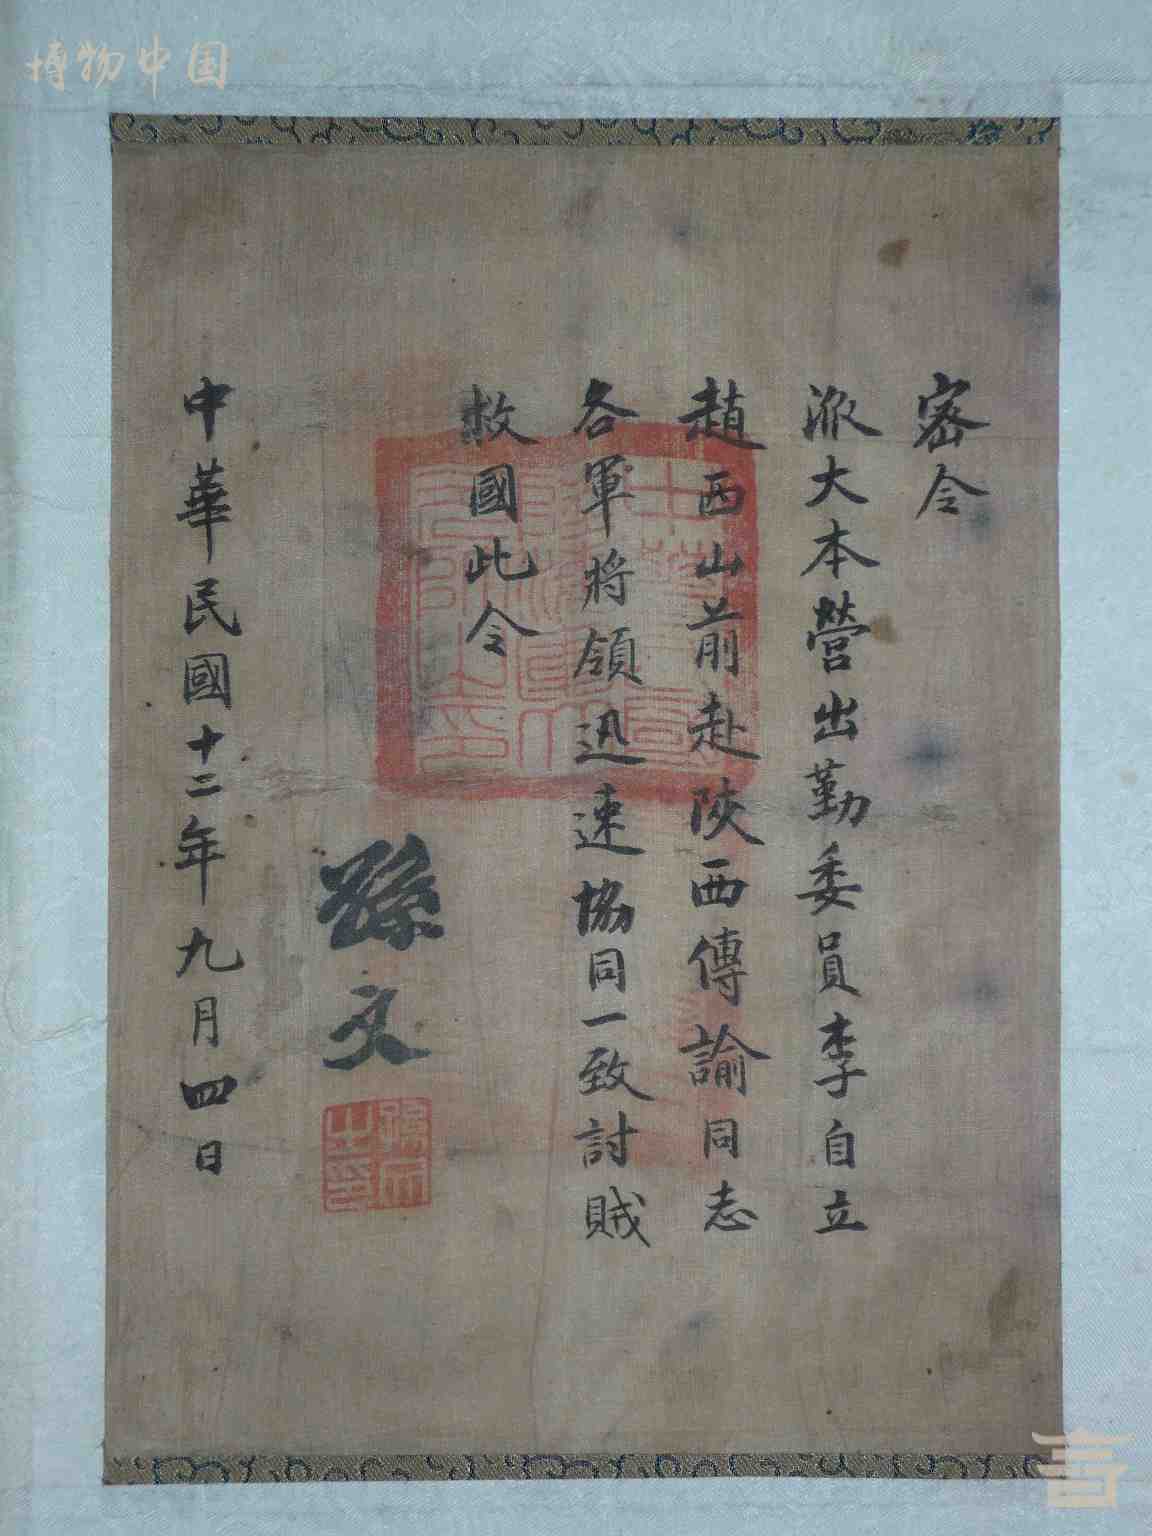 博物中国
密令
派大本營出勤委員李自立
趙西山前赴陝西傳諭同志
各軍將領迅速協同一致討賊
救國此令
孫文
孫文之印
中華民國十二年九月四日